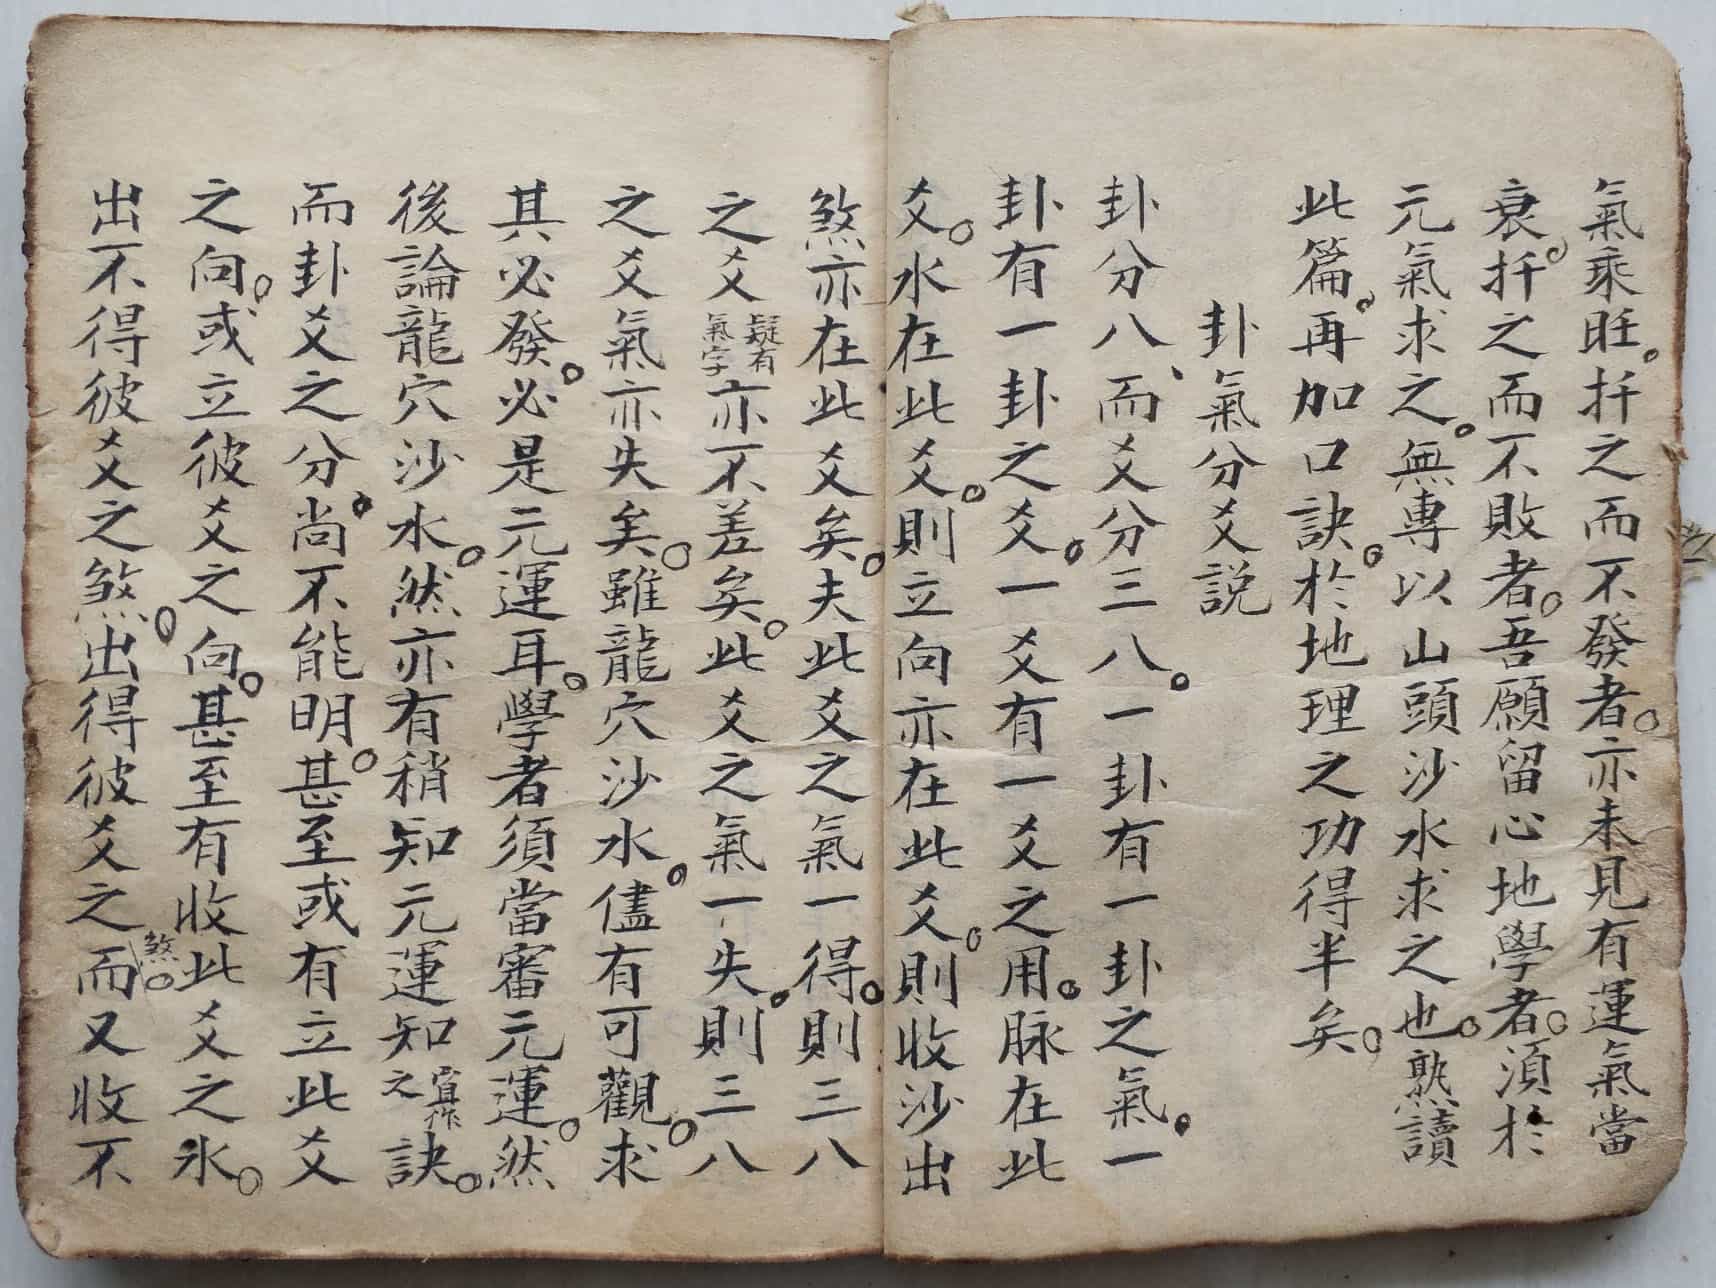 氣乘旺。扦之而不發者。亦未見有運氣當
衰。扦之而不敗者。吾願留心地學者。須於
元氣求之。無專以山頭沙水求之也。熟讀
此篇。再加口訣。於地理之功得半矣。
卦氣分爻説
卦分八、而爻分三八。一卦有一卦之氣。一
卦有一卦之爻。一爻有一爻之用。脉在此
爻。水在此爻。則立向亦在此爻。則收沙出
煞亦在此爻矣。夫此爻之氣一得。則三八
之爻疑有氣字亦不差矣。此爻之氣一失。則三八
之爻氣亦失矣。雖龍穴沙水。儘有可觀。求
其必發。必是元運耳。學者須當審元運。然
後論龍穴沙水。然亦有稍知元運知宜作之訣。
而卦爻之分。尚不能明。甚至或有立此爻
之向。或立彼爻之向。甚至有收此爻之水。
出不得彼爻之煞。出得彼爻之煞。而又收不